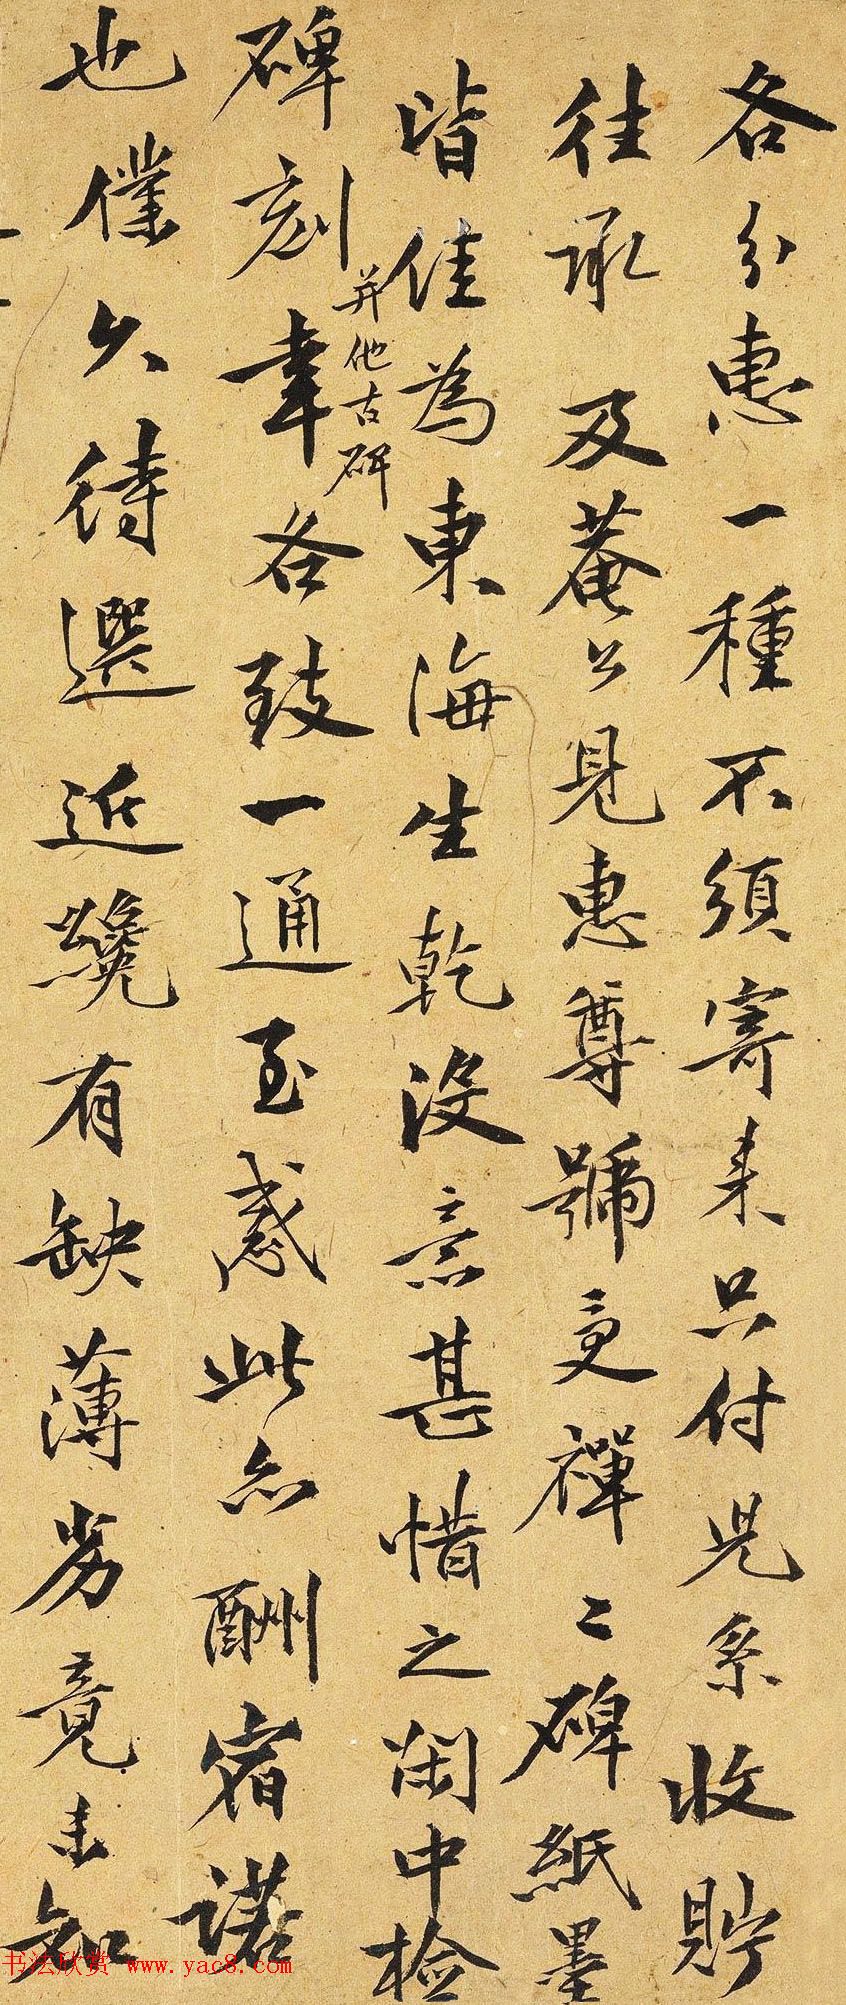 各分惠一種不須寄来只付児系收貯
往承及菴公見惠尊號受禪二碑紙墨
皆佳為東海生乾没意甚惜之閑中檢
碑刻幸各致一通至感此亦酬宿諾
并他古碑
也僕久待選近纔有缺薄劣竟未知
书法欣赏 www.yac8.com